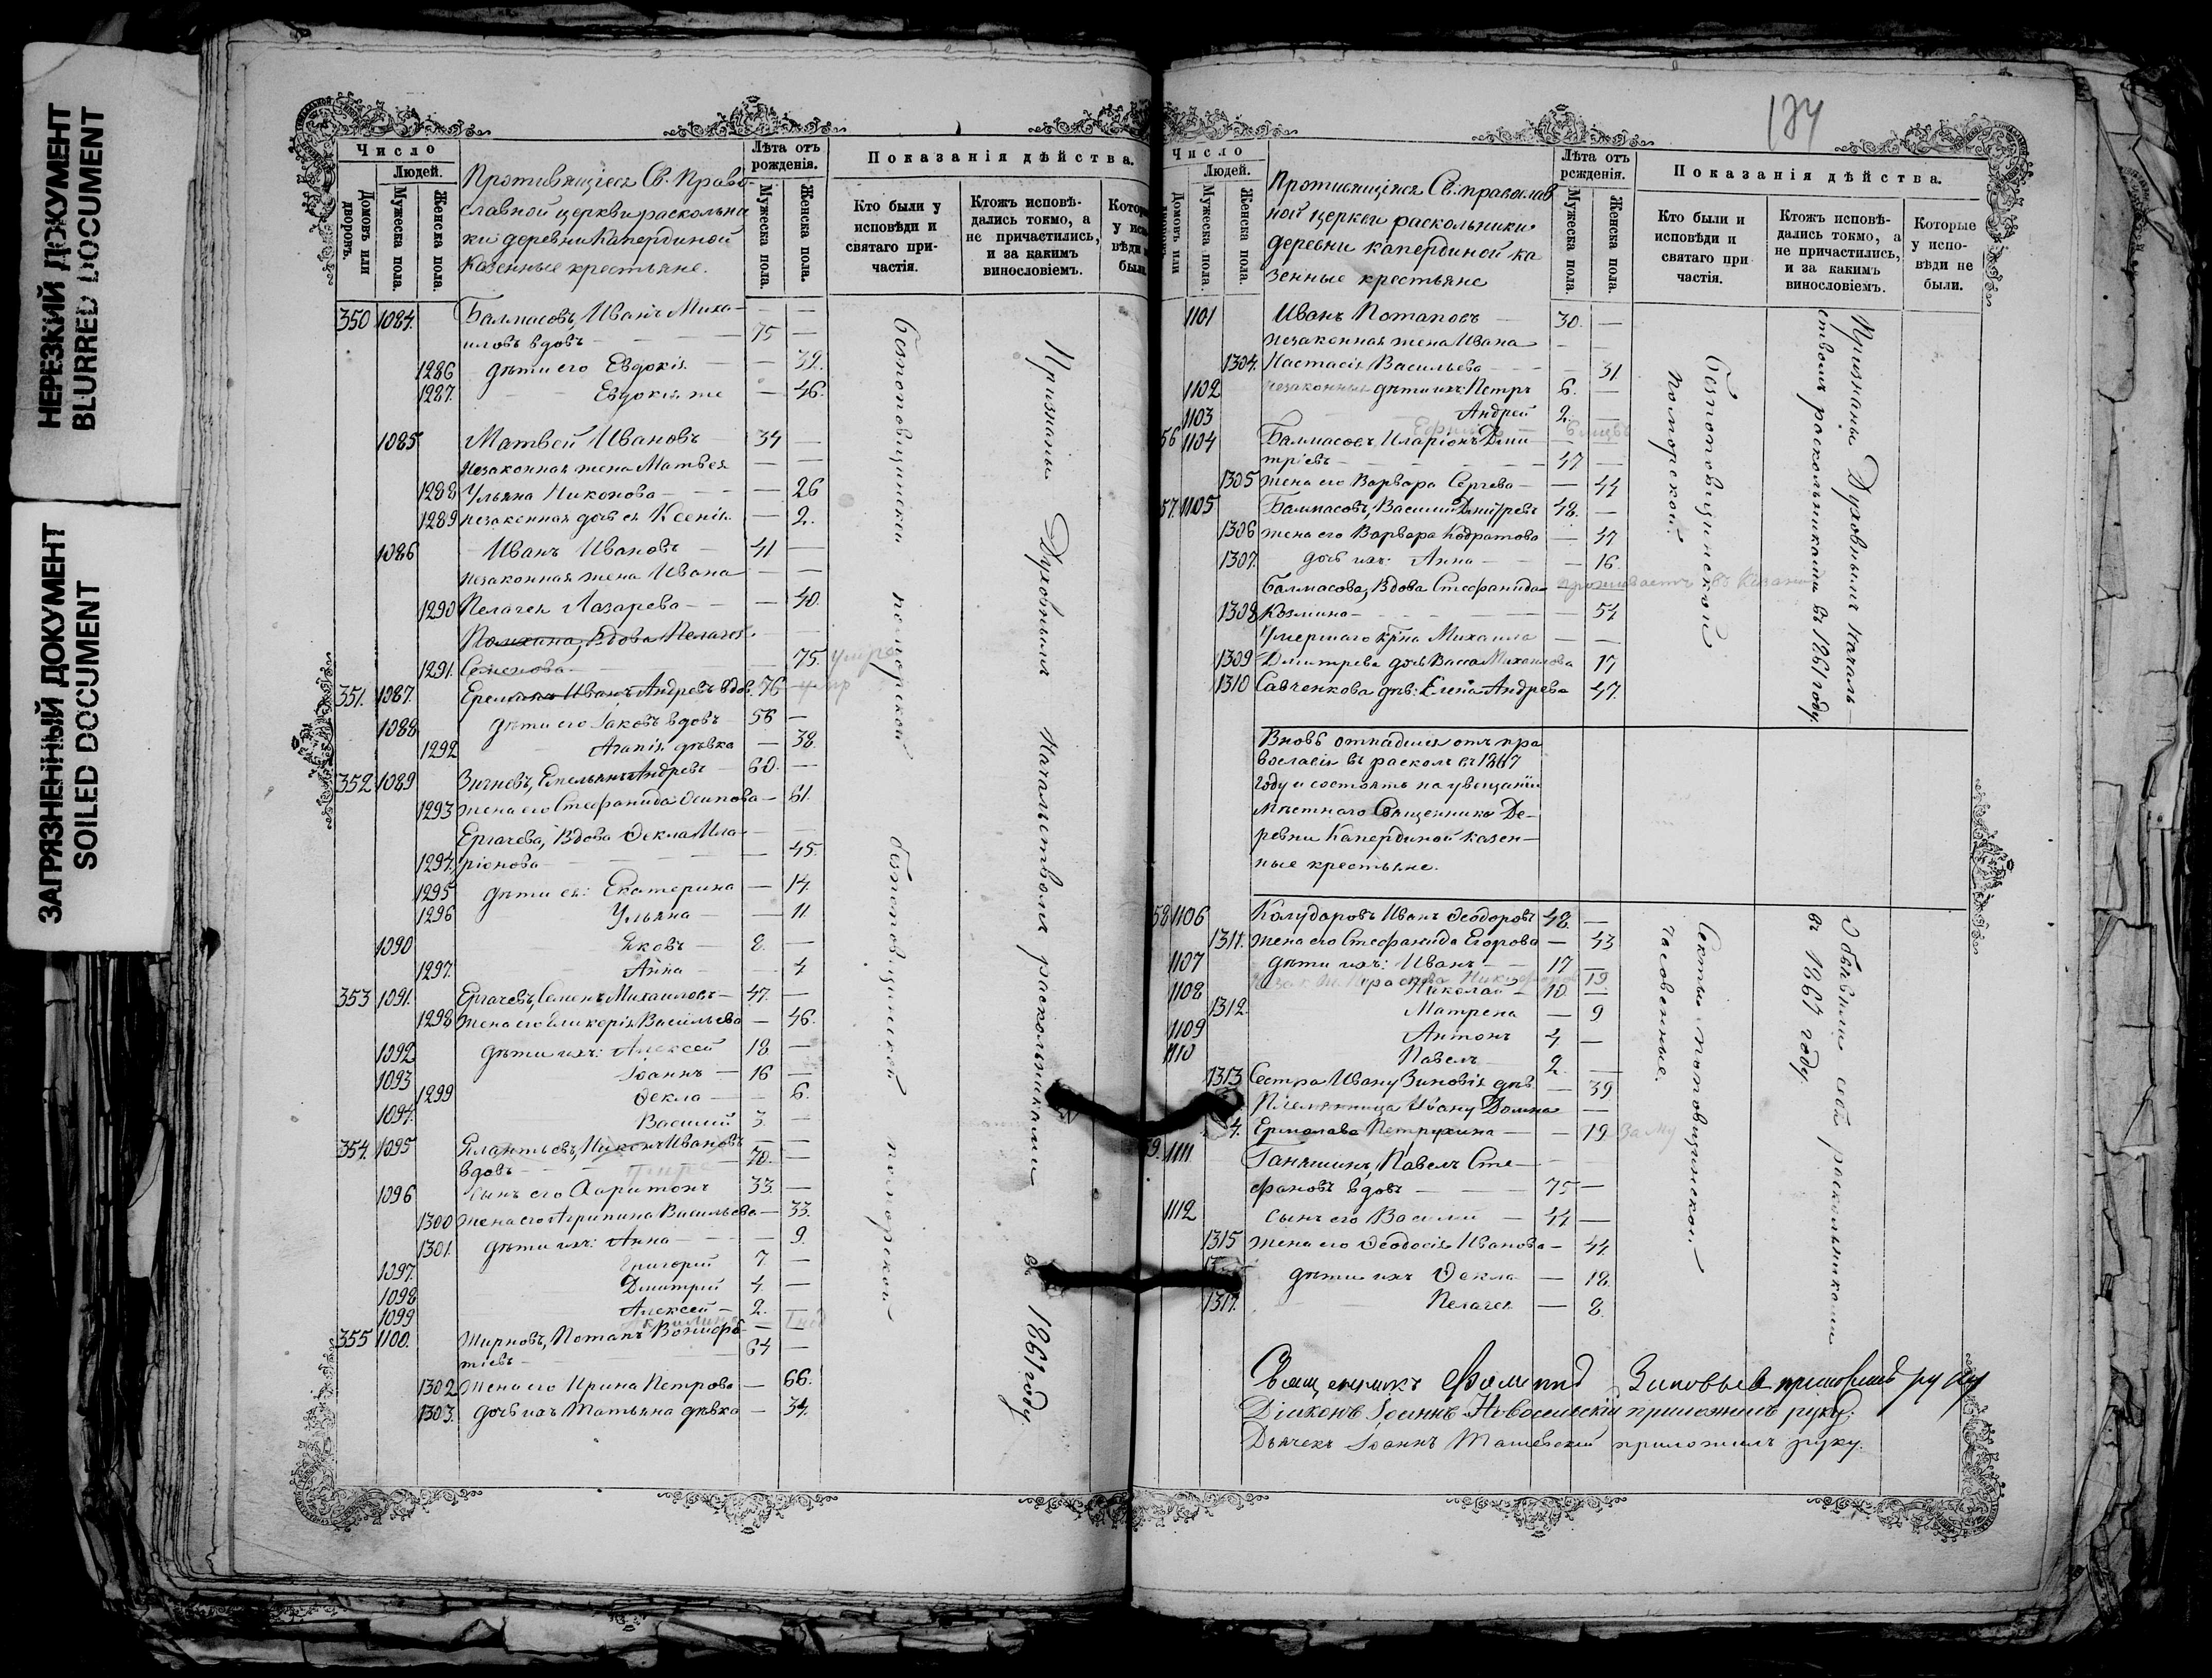 НЕРЕЗКИЙ ДОКУМЕНТ
BLURRED DOCUMENT
ЗАГРЯЗНЕННЫЙ ДОКУМЕНТ
SOILED DOCUMENT
Число
Людей.
Домовъ или дворовъ.
Мужеска пола.
Женска пола.
Противящіеся Св. Право-
славной церкви раскольни
ки деревни Капердиной
казенные крестьяне.
Лѣта отъ рожденія.
Мужеска пола.
Женска пола.
Показанія дѣйства.
Кто были у исповѣди и святаго при-частія.
Ктожъ исповѣ-дались токмо, а не причастились, и за какимъ винословіемъ.
350 1084. Балмасовъ, Иванъ Миха- — —
иловъ вдовъ — 75 —
1286 дѣти его Евдокія — 39.
1287. Евдокія же — 46.
1085 Матвей Ивановъ 34 —
незаконная жена Матвея — —
1288 Ульяна Никонова — — 26
1289 незаконная дочь ея Ксенія — 2.
1086 Иванъ Ивановъ — 41 —
незаконная жена Ивана — —
1290 Пелагея Лазарева — — 40.
вдова Пелагея — —
1291. Семенова — 75.
351. 1087. Иванъ Андреевъ вдов. 76
1088 дѣти его Іаковъ вдовъ 56 —
1292 Агапія дѣвка — 38.
352 1089 Емельянъ Андреевъ 60. —
1293 жена его Стефанида Осипова — 61.
Ергачева, Вдова Ѳекла Ила-
1294. ріонова — — 45.
1295 дѣти ея: Екатерина — 14.
1296 Ульяна — — 11
1090 Яковъ — 8. —
1297. Анна — — 4
353 1091. Ергачевъ, Семенъ Михаиловъ — 47. —
1298 жена его Гликерія Васильева — 46.
1092 дѣти ихъ: Алексей 18 —
1093 Іоаннъ — 16 —
1299 Ѳекла — — 6.
1094. Василий 3 —
354. 1095 Никонъ Ивановъ — —
вдовъ — 70. —
1096 сынъ его Харитонъ 33. —
1300 жена его Агрипина Васильева — 33.
1301. дѣти ихъ: Анна — — 9.
1097. Григорий 7 —
1098 Дмитрий 4. —
1099 Алексей — 2. —
355 1100. Жирновъ, Потапъ — —
тіевъ — 64 —
1302 жена его Ирина Петрова — 66.
1303. дочь ихъ Татьяна дѣвка — 34.
безпоповщинской поморской безпоповщинской поморской
Признаны Духовнымъ Начальствомъ раскольниками въ 1861 году.
134
Число
Людей.
Мужеска пола.
Женска пола.
Противящіяся Св. православ
ной церкви раскольники
деревни капердиной ка
зенные крестьяне
Лѣта отъ рожденія.
Мужеска пола.
Женска пола.
Показанія дѣйства.
Кто были и исповѣди и святаго при частія.
Ктожъ исповѣ-дались токмо, а не причастились, и за какимъ винословіемъ.
Которые у испо-вѣди не были.
1101 Иванъ Потаповъ — 30. —
незаконная жена Ивана — —
1304. Настасія Васильева — — 31.
1102 незаконные дѣти ихъ: Петръ 6. —
1103 Андрей 2. —
56 1104 Балмасовъ, Иларіонъ Дми — —
тріевъ — 47 —
1305 жена его Варвара Сергева — — 44
57. 1105 Балмасовъ, Василий Дмитревъ 48. —
1306 жена его Варвара Кодратова — 47
1307. дочь ихъ: Анна — — 16.
Балмасова, Вдова Стефанида — проживаетъ въ Казани
1308 Козмина — — 54
Умершаго кр̃на Михаила — —
1309 Дмитрева дочь Васса Михайлова 17
1310 Савченкова дѣв: Елена Андрева 47.
безпоповщинской поморской.
Признаны Духовнымъ Началь-
ствомъ раскольниками въ 1861 году.
Вновь отпадшія отъ пра
вославія въ расколъ въ 1867
году и состоятъ на увещаніи
мѣстнаго Священника Де-
ревни Капердиной казен-
ные крестьяне.
58 1106 Калударовъ Иванъ Ѳеодоровъ 48. —
1311. жена его Стефанида Егорова — 43
1107 дѣти ихъ: Иванъ — 17 —
1108 Николай — 10. —
1312. Матрена — 9
1109 Антонъ 4. —
1110 Павелъ 2. —
1313 Сестра Ивану Зиновія дѣв — 39
Племянница Ивану Домна —
4. Ермолаева Петрухина — — 19
59. 1111 Ганюшинъ, Павелъ Сте- — —
фановъ вдовъ — 75 —
1112 сынъ его Василий — 44 —
1315 жена его Ѳеодосія Иванова — 44.
дѣти ихъ Ѳекла — 18.
1317. Пелагея — 8.
Секты поповщинской часовенные.
Объявили себя раскольниками
въ 1867 году.
Священникъ Зиновьевъ приложилъ руку
Діаконъ Іоаннъ Новосельскій приложилъ руку.
Дьячекъ Іоаннъ приложилъ руку.